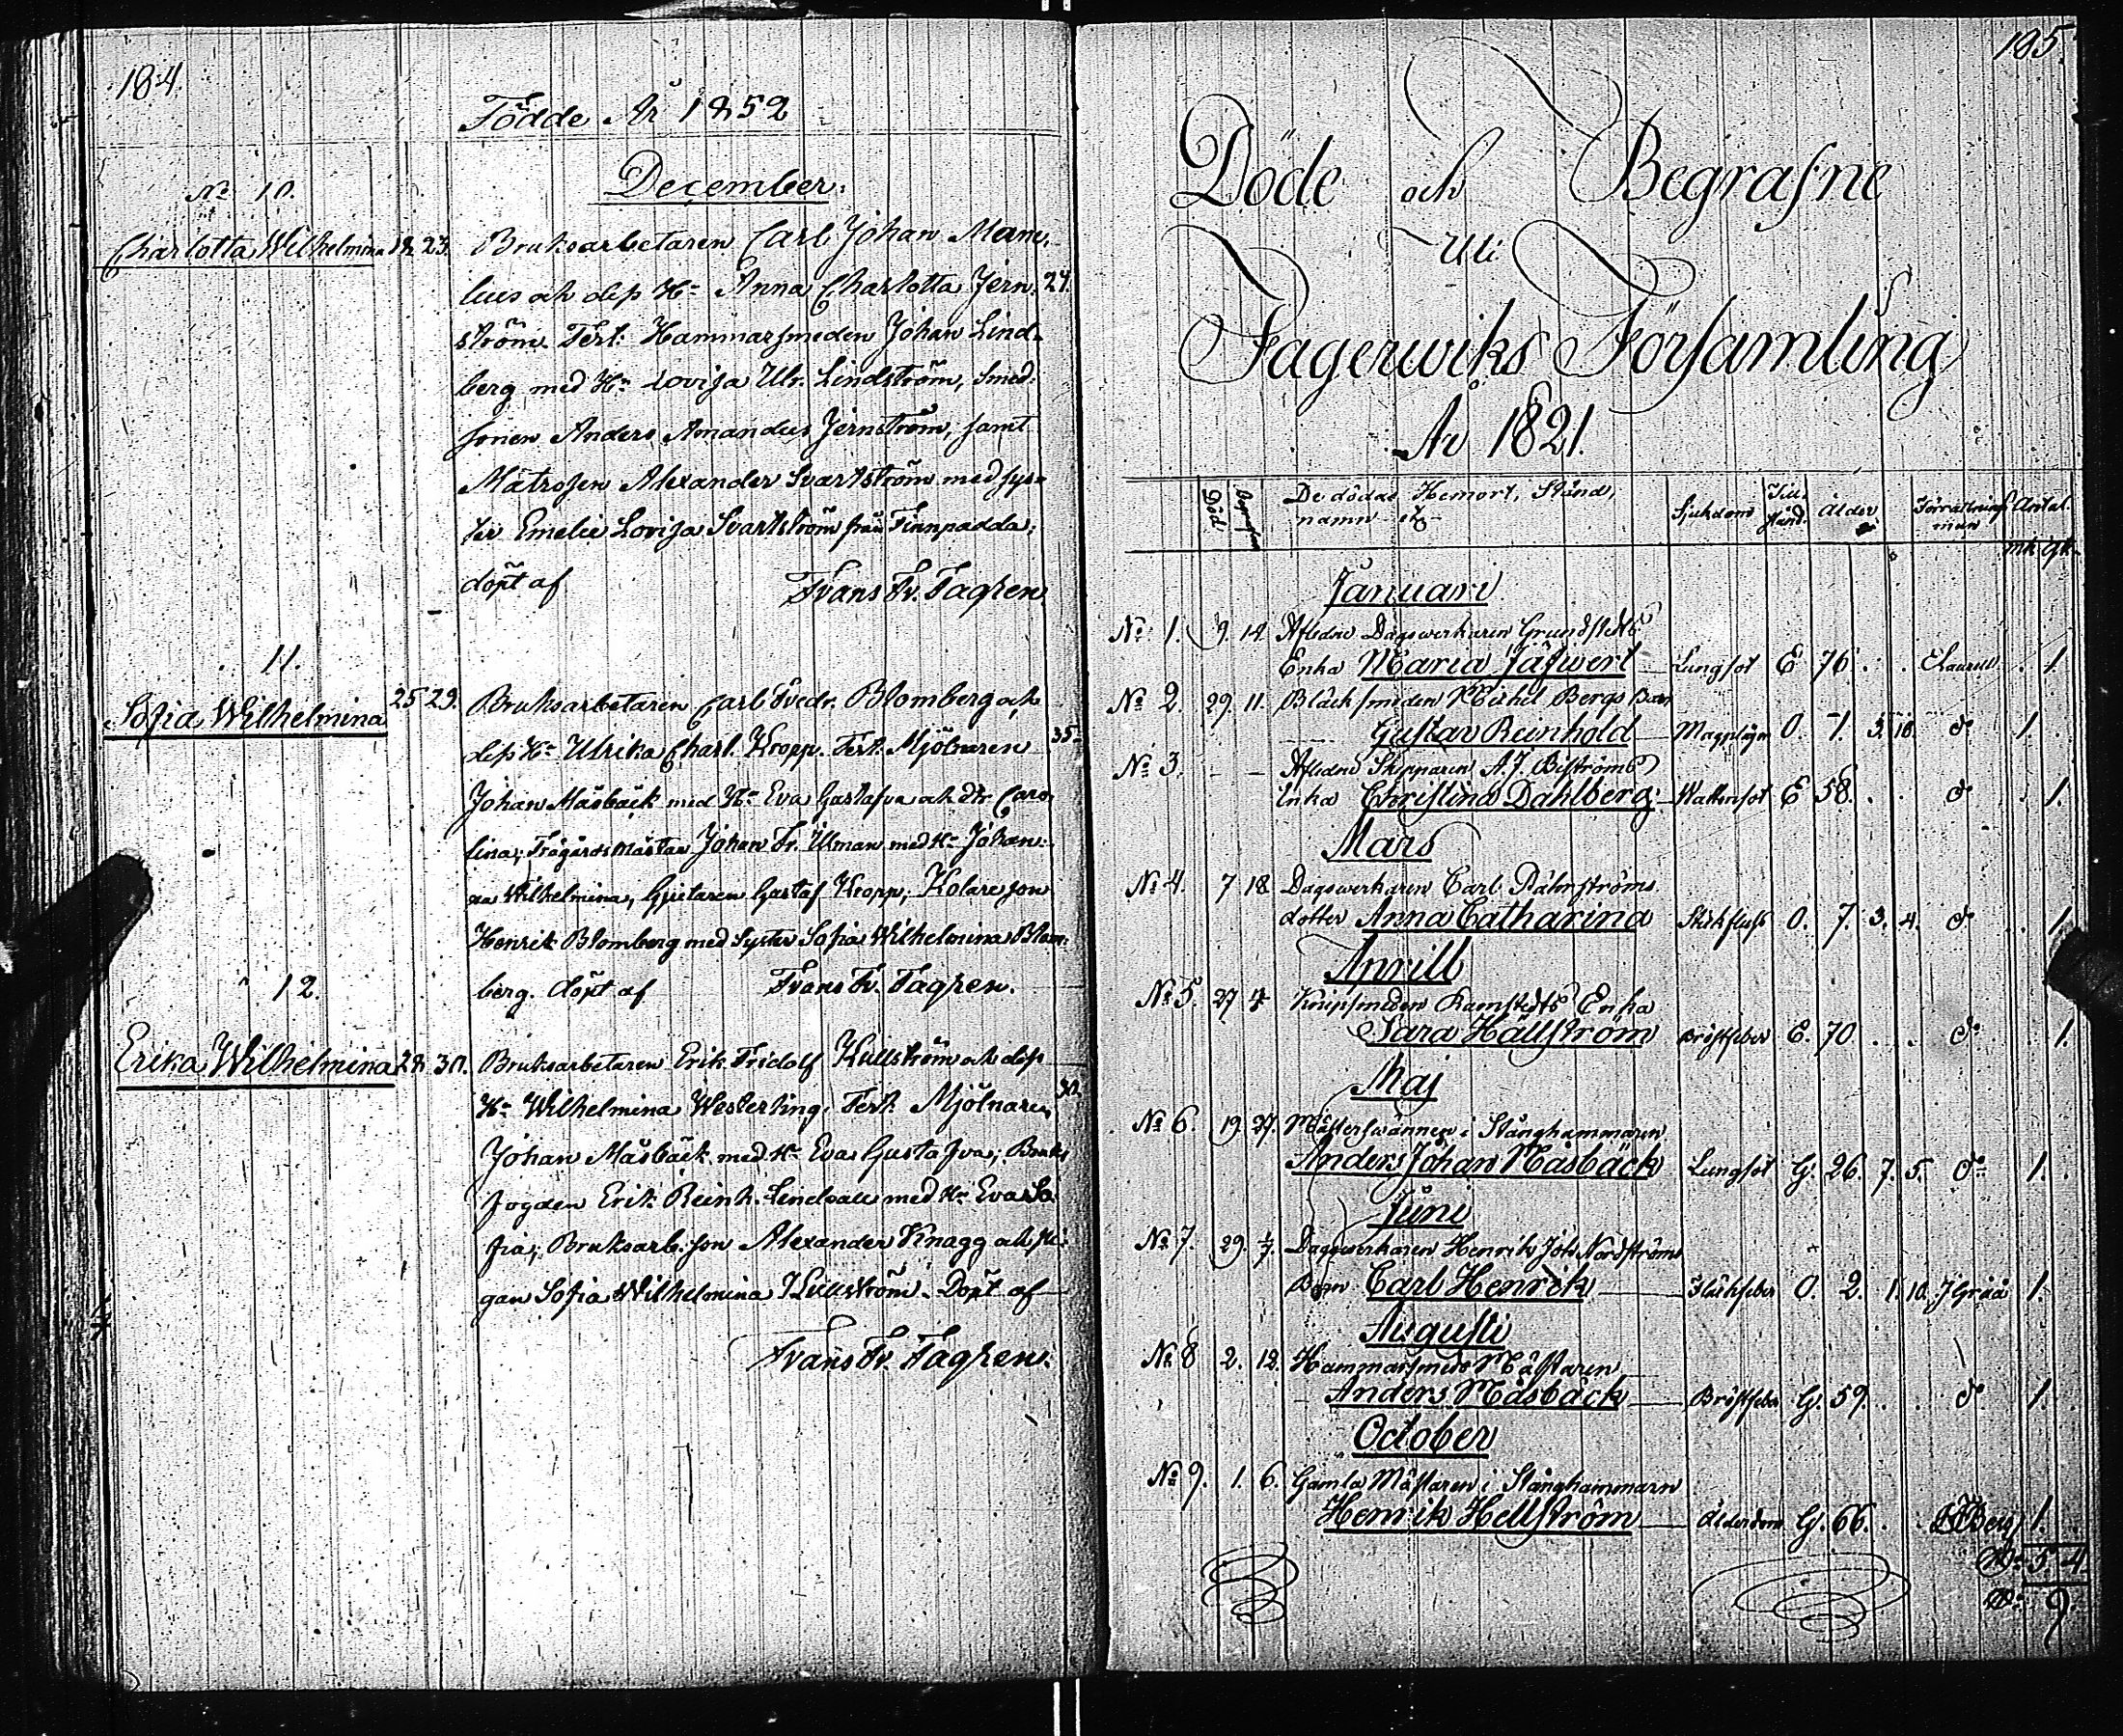 184
Födde År 1852
December.
No 10.
Charlotta Wilhelmina 18 23. Bruksarbetaren Carl Johan Mam-
lius och dess Hu Anna Charlotta Jern- 24.
ström. Test: Hammarsmeden Johan Lind-
berg med Hu Lovisa Ulr. Lindström, Smed-
sonen Anders Amandus Jernström, samt
Matrosen Alexander Svartström med sys-
ter Emelie Lovisa Svartström från Finnpadda;
döpt af Frans Fr. Fagren.
11.
Sofia Wilhelmina 25 29. Bruksarbetaren Carl Fredr. Blomberg och
dess Hu Ulrika Charl. Kropp. Test. Mjölnaren 35
Johan Måsbäck med Hu Eva Gustafva och dtr Caro-
lina; Trägårdsmästar Johan Fr. Ulman med Hu Johan-
na Wilhelmina, Gjutaren Gustaf Kropp; Kolare son
Henrik Blomberg med Syster Sofia Wilhelmina Blom-
berg. döpt af Frans Fr. Fagren.
12.
Erika Wilhelmina 28 30. Bruksarbetaren Erik Fridolf Kullström och dess
Hu Wilhelmina Westerling. Test. Mjölnaren 30.
Johan Måsbäck med Hu Eva Gustafva; Bruks
fogden Erik Reinh. Lindvall med Hu Eva So-
fia; Bruksarb. son Alexander Knagg och pi-
gan Sofia Wilhelmina Kullström. Döpt af
Frans Fr. Fagren.
185.
Döde och Begrafne
Uti
Fagerwiks Församling
År 1821.
Död Begrafen De dödas Hemort, Stånd, namn etc Sjukdom Till-stånd. Ålder Förrättnings man Antal
mk qk
Januari
No 1. 9. 14. Afledne Dagswerkaren Grundstedts
Enka Maria Jäfwert Lungsot E 76. . . Claurell . 1.
No 2. 29. 11. Bläcksmeden Mickel Bergs Barn
Gustav Reinhold Magplågor O. 1. 3. 10. do 1. .
No 3. - - Afledne Skepparen A. J. Biströms
Enka Christina Dahlberg. Wattensot E 58. . . do . 1.
Mars
No 4. 7 18 Dagswerkaren Carl Råhnströms
dotter Anna Catharina Stickfluss O. 7. 3. 4. do . 1.
Aprill
No 5. 27 4 Knipsmeden Ramstedts Enka
Sara Hällström Bröstfeber E. 70 . . do . 1.
Maj
No 6. 19. 27. Mästerswännen i Stånghammaren
Anders Johan Måsbäck Lungsot G. 26. 7. 5. do 1. .
Juni
No 7. 29. 1/7. Dagswerkaren Henrik Joh. Nordströms
Barn Carl Henrik Fläckfeber O. 2. 1. 10. J Gråå 1.
Augusti
No 8 2. 12. Hammarsmeds Mästaren
Anders Måsbäck Bröstfeber G. 59. . . do 1.
October
No 9. 1. 6. Gamla Mästaren i Stånghammarn
Henrik Hellström Ålderdom G. 66. . . Berg 1.
5. 4
9.